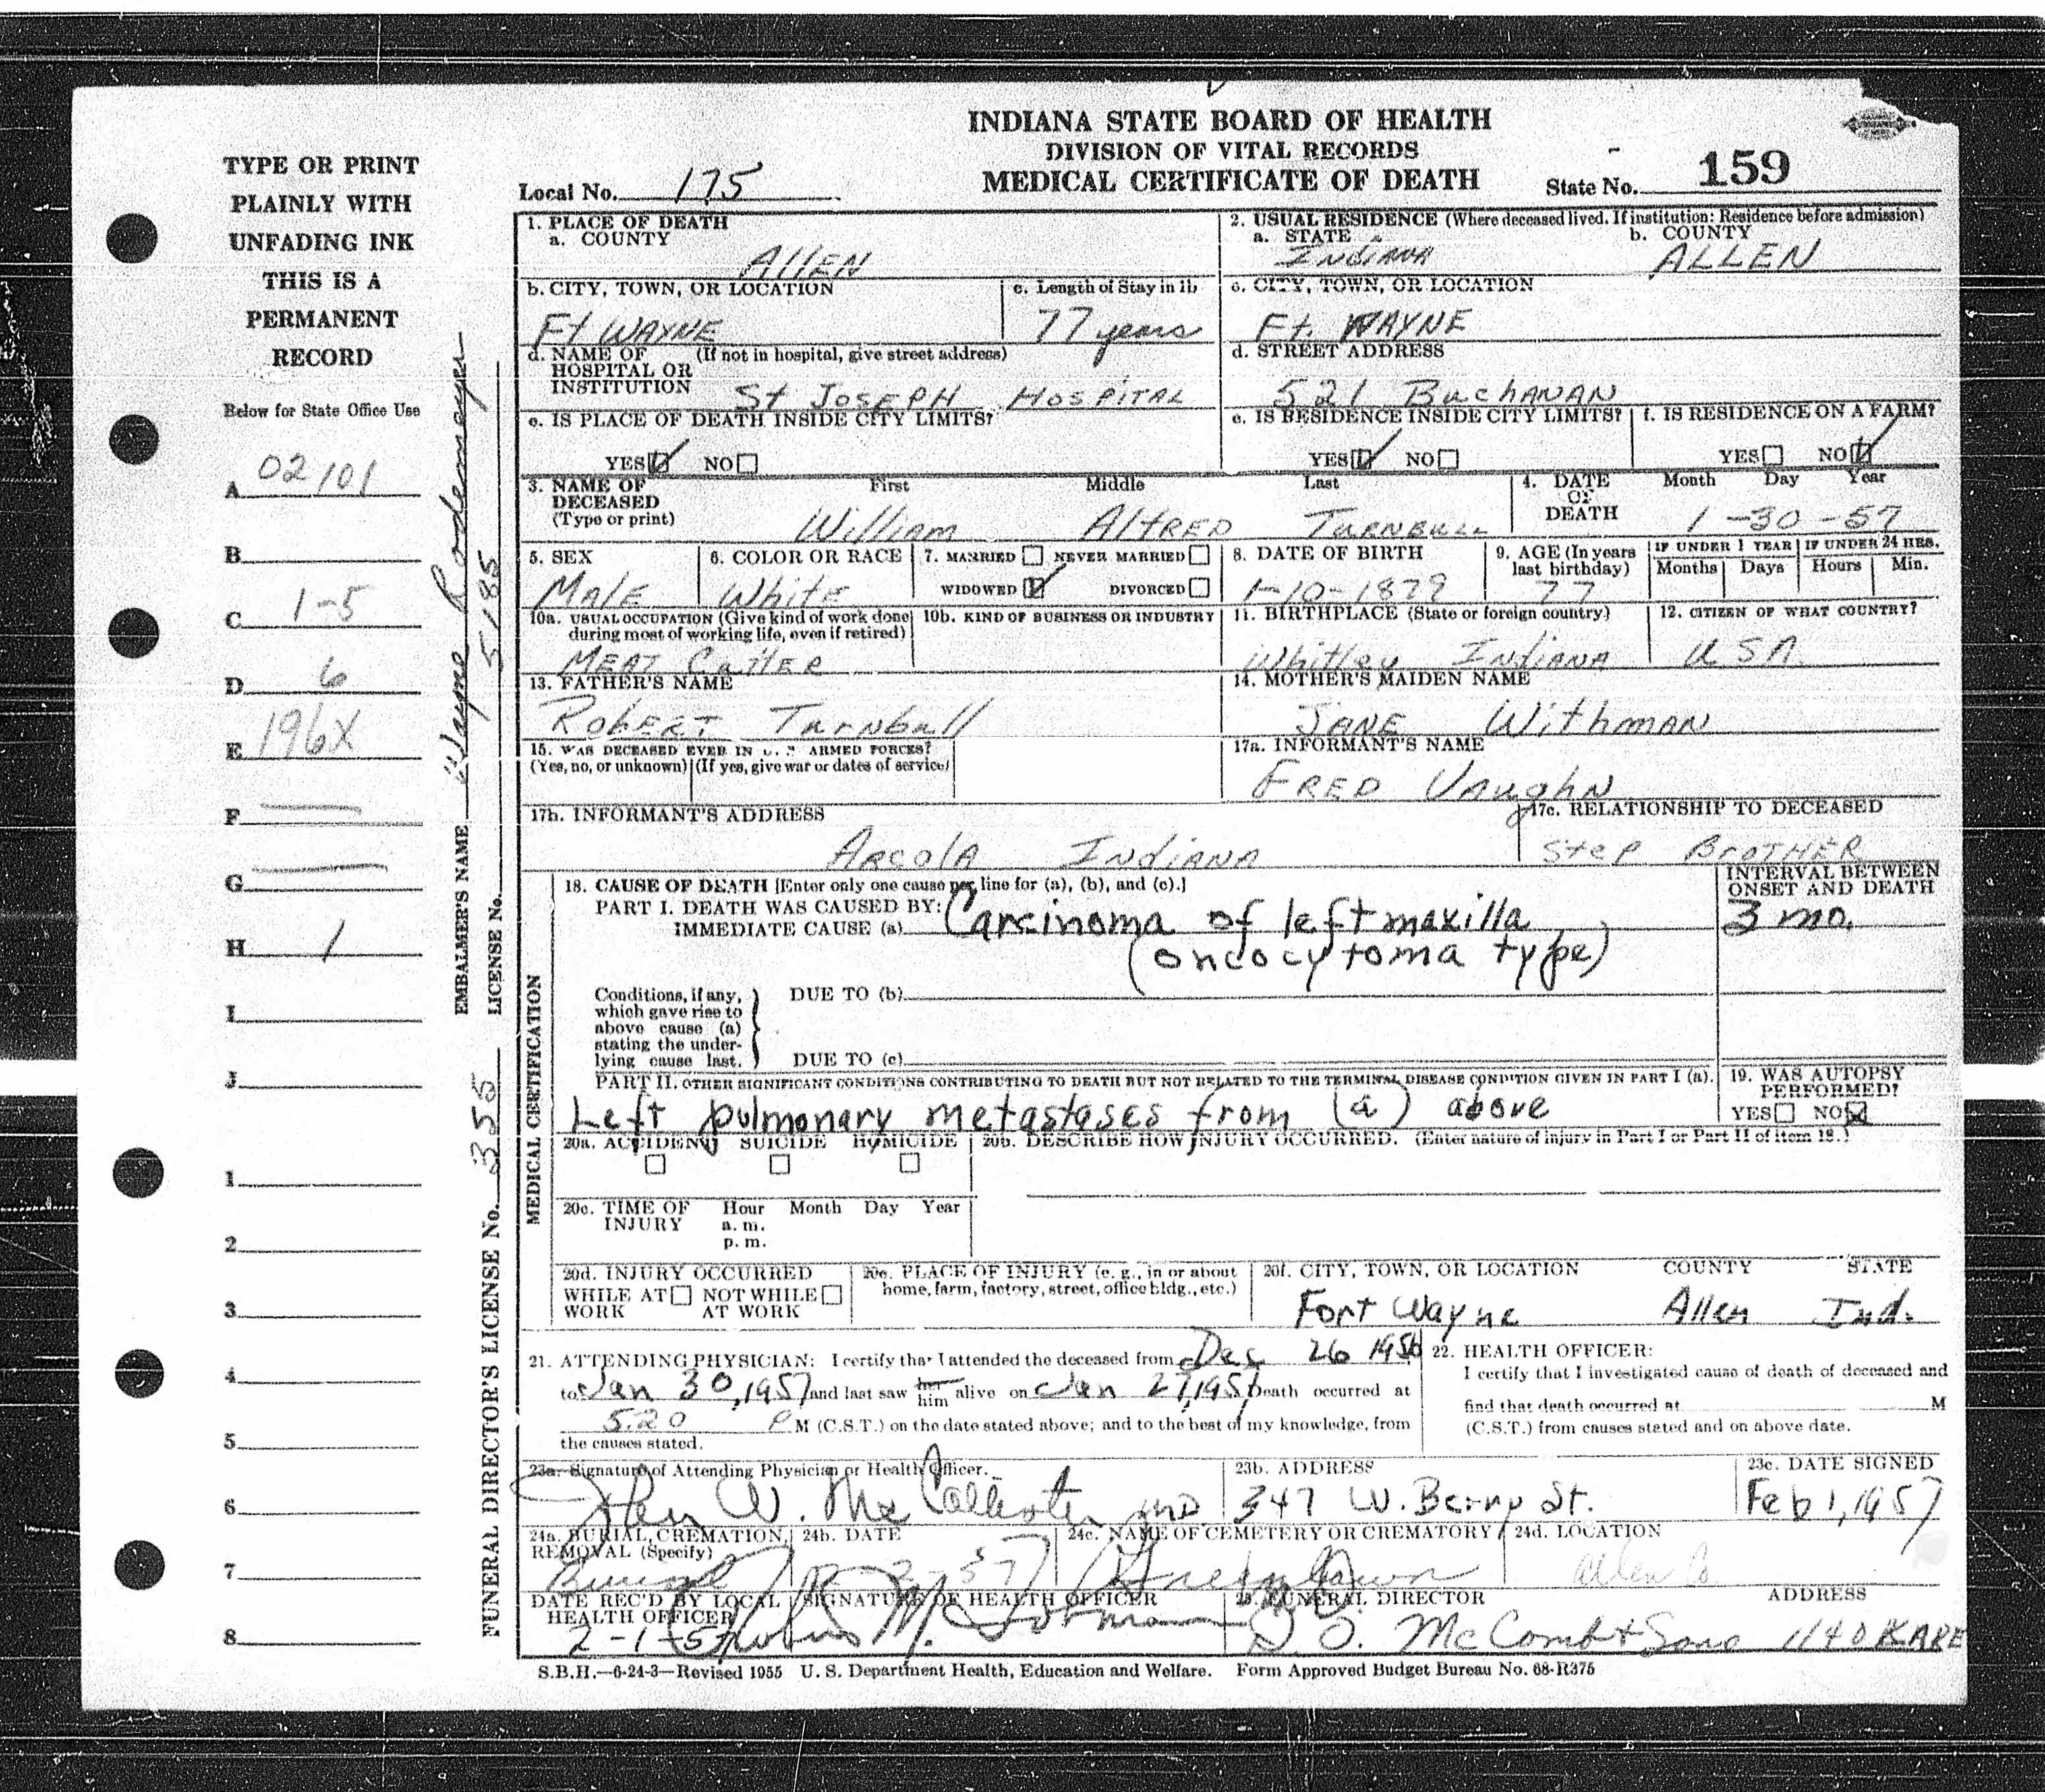 INDIANA STATE BOARD OF HEALTH
DIVISION OF VITAL RECORDS
MEDICAL CERTIFICATE OF DEATH
Local No. 175
State No. 159
TYPE OR PRINT
PLAINLY WITH
UNFADING INK
THIS IS A
PERMANENT
RECORD
Below for State Office Use
A 02101
B
C 1-5
D 6
E 196X
F
G
H 1
I
J
1
2
3
4
5
6
7
8
EMBALMER'S NAME Wayne Rodemeyer
LICENSE No. 5185
FUNERAL DIRECTOR'S LICENSE No. 355
1. PLACE OF DEATH
a. COUNTY
Allen
2. USUAL RESIDENCE (Where deceased lived. If institution: Residence before admission)
a. STATE b. COUNTY
Indiana ALLEN
b. CITY, TOWN, OR LOCATION c. Length of Stay in 1b
Ft WAYNE 77 years
c. CITY, TOWN, OR LOCATION
Ft. WAYNE
d. NAME OF (If not in hospital, give street address)
HOSPITAL OR
INSTITUTION St JOSEPH HOSPITAL
d. STREET ADDRESS
521 BuchANAN
e. IS PLACE OF DEATH INSIDE CITY LIMITS?
YES NO
e. IS RESIDENCE INSIDE CITY LIMITS? f. IS RESIDENCE ON A FARM?
YES NO YES NO
3. NAME OF First Middle Last
DECEASED
(Type or print) William Alfred Turnbull
4. DATE Month Day Year
OF
DEATH 1-30-57
5. SEX
Male
6. COLOR OR RACE
White
7. MARRIED NEVER MARRIED
WIDOWED DIVORCED
8. DATE OF BIRTH
1-10-1879
9. AGE (In years
last birthday)
77
IF UNDER 1 YEAR IF UNDER 24 HRS.
Months Days Hours Min.
10a. USUAL OCCUPATION (Give kind of work done
during most of working life, even if retired)
MEAT Cutter
10b. KIND OF BUSINESS OR INDUSTRY
11. BIRTHPLACE (State or foreign country)
Whitley Indiana
12. CITIZEN OF WHAT COUNTRY?
USA
13. FATHER'S NAME
Robert Turnbull
14. MOTHER'S MAIDEN NAME
JANE Withman
15. WAS DECEASED EVER IN U. S. ARMED FORCES?
(Yes, no, or unknown) (If yes, give war or dates of service)
17a. INFORMANT'S NAME
FRED Vaughn
17b. INFORMANT'S ADDRESS
Arcola Indiana
17c. RELATIONSHIP TO DECEASED
Step Brother
MEDICAL CERTIFICATION
18. CAUSE OF DEATH [Enter only one cause per line for (a), (b), and (c).]
PART I. DEATH WAS CAUSED BY:
IMMEDIATE CAUSE (a) Carcinoma of left maxilla
(oncocytoma type)
INTERVAL BETWEEN
ONSET AND DEATH
3 mo.
Conditions, if any,
which gave rise to
above cause (a)
stating the under-
lying cause last.
DUE TO (b)
DUE TO (c)
PART II. OTHER SIGNIFICANT CONDITIONS CONTRIBUTING TO DEATH BUT NOT RELATED TO THE TERMINAL DISEASE CONDITION GIVEN IN PART I (a).
Left pulmonary metastases from (a) above
19. WAS AUTOPSY
PERFORMED?
YES NO
20a. ACCIDENT SUICIDE HOMICIDE
20b. DESCRIBE HOW INJURY OCCURRED. (Enter nature of injury in Part I or Part II of item 18.)
20c. TIME OF Hour Month Day Year
INJURY a. m.
p. m.
20d. INJURY OCCURRED
WHILE AT NOT WHILE
WORK AT WORK
20e. PLACE OF INJURY (e. g., in or about
home, farm, factory, street, office bldg., etc.)
20f. CITY, TOWN, OR LOCATION COUNTY STATE
Fort Wayne Allen Ind.
21. ATTENDING PHYSICIAN: I certify that I attended the deceased from Dec 26 1956
to Jan 30, 1957 and last saw her him alive on Jan 27, 1957 Death occurred at
5:20 P M (C.S.T.) on the date stated above; and to the best of my knowledge, from
the causes stated.
22. HEALTH OFFICER:
I certify that I investigated cause of death of deceased and
find that death occurred at M
(C.S.T.) from causes stated and on above date.
23a. Signature of Attending Physician or Health Officer.
W. McCallister MD
23b. ADDRESS
347 W. Berry St.
23c. DATE SIGNED
Feb 1, 1957
24a. BURIAL, CREMATION,
REMOVAL (Specify)
Burial
24b. DATE
2-57
24c. NAME OF CEMETERY OR CREMATORY
Greenlawn
24d. LOCATION
Allen Co.
DATE REC'D BY LOCAL
HEALTH OFFICER
2-1-57
SIGNATURE OF HEALTH OFFICER
25. FUNERAL DIRECTOR ADDRESS
D. O. McComb & Sons 1140 LAKE
S.B.H.—6-24-3—Revised 1955 U. S. Department Health, Education and Welfare. Form Approved Budget Bureau No. 68-R375